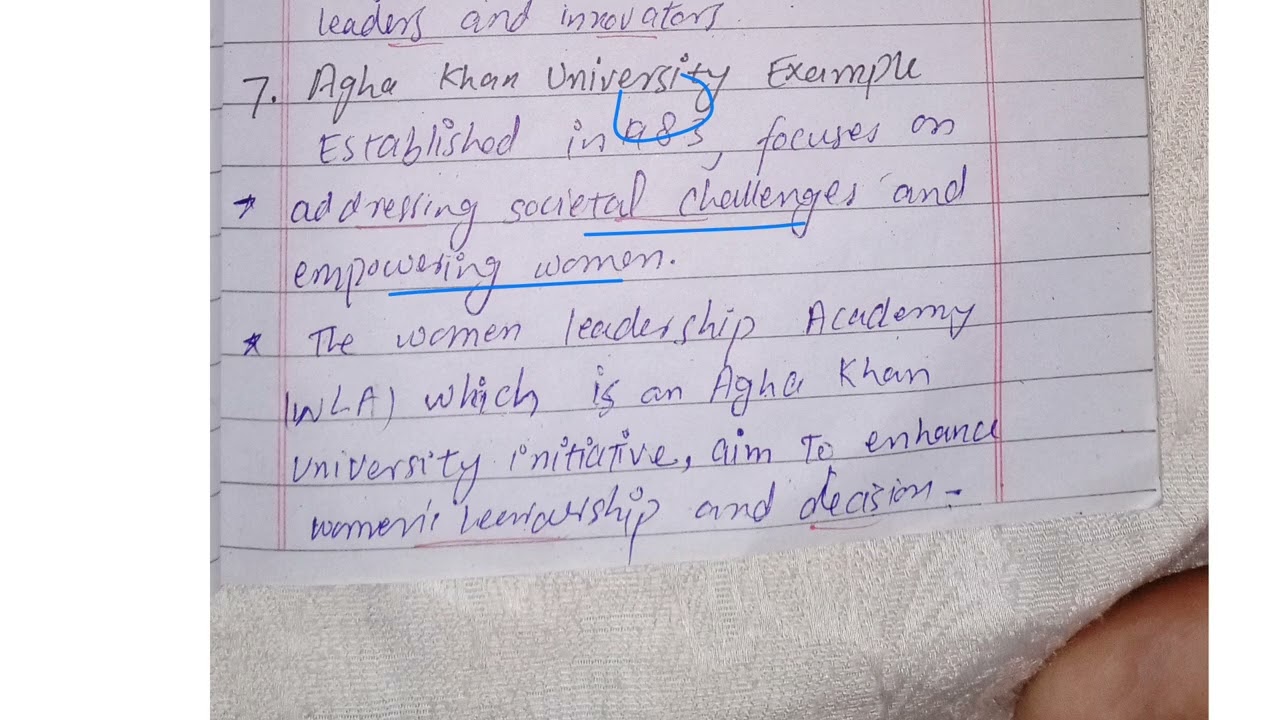 leaders and innovators.
7. Agha Khan University Example
Established in 1983, focuses on
* addressing societal challenges and
empowering women.
* The women leadership Academy
(WLA) which is an Agha Khan
University initiative, aim to enhance
women's leadership and decision-